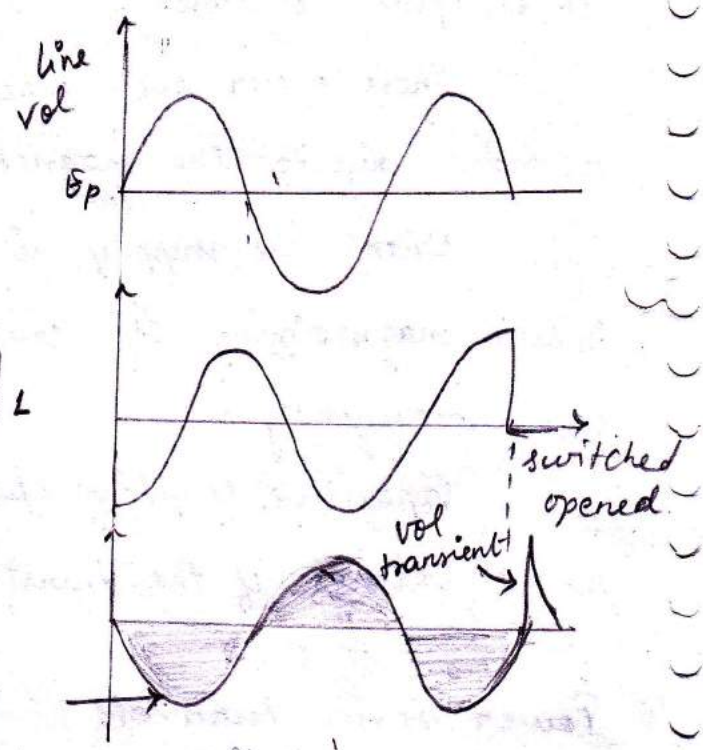 line
vol
Ep
L
switched
opened
vol
transient